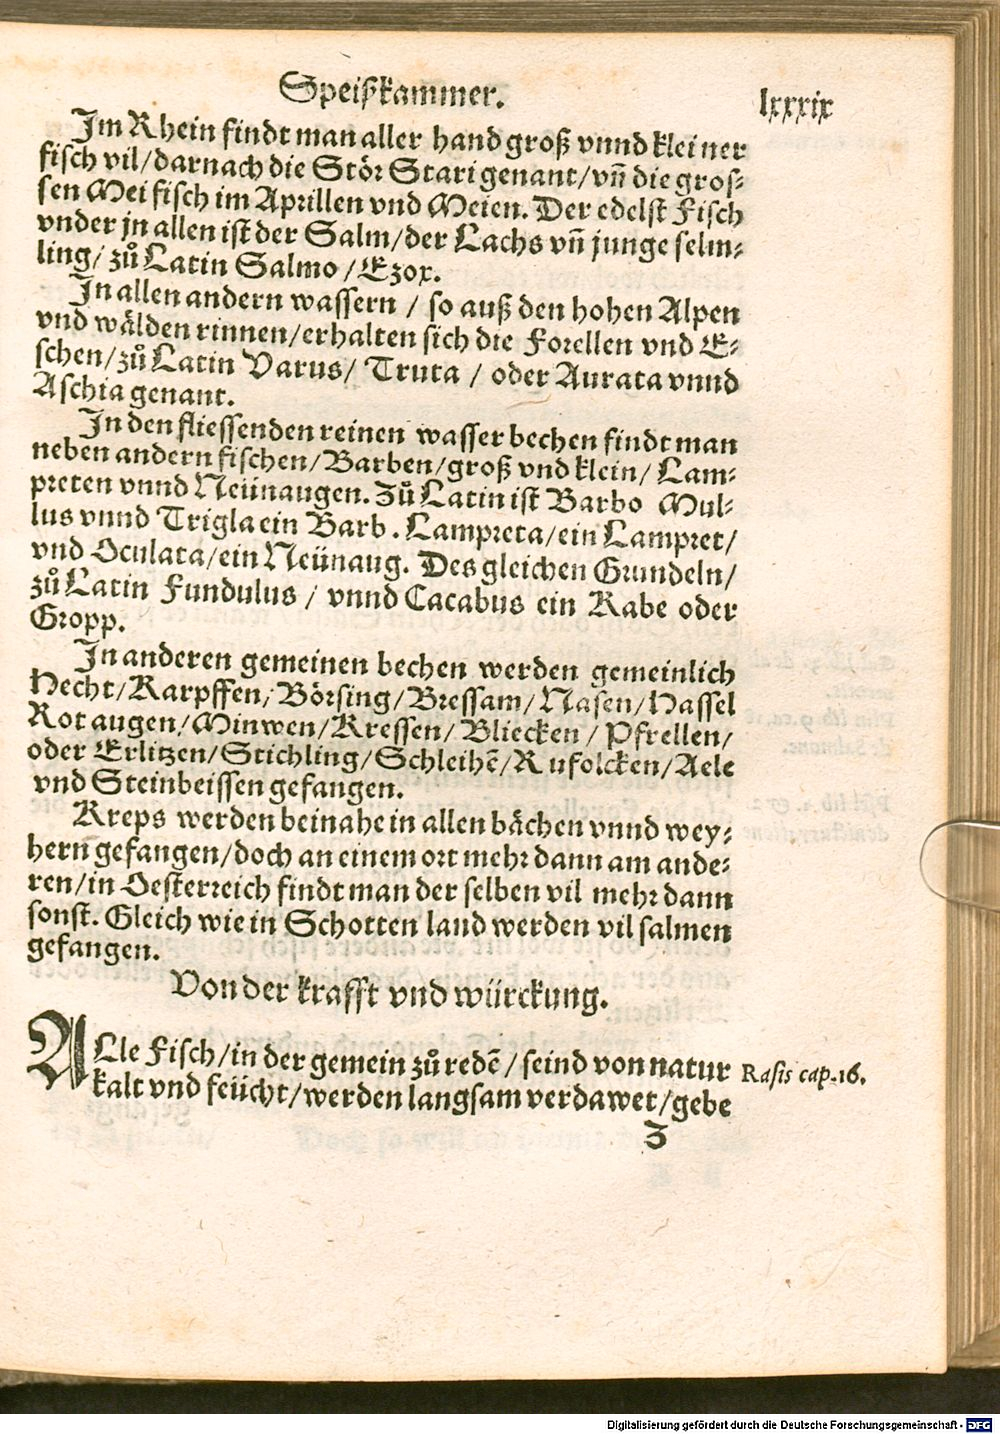 Speißkammer.
lxxxix
Im Rhein findt man aller hand groß vnnd kleiner
fisch vil/darnach die Stör Stari genant/vñ die gros⸗
sen Mei fisch im Aprillen vnd Meien. Der edelst Fisch
vnder jn allen ist der Salm/der Lachs vñ junge selm⸗
ling/ zů Latin Salmo / Ezox.
In allen andern wassern / so auß den hohen Alpen
vnd wälden rinnen/erhalten sich die Forellen vnd E⸗
schen/zů Latin Varus/ Truta / oder Aurata vnnd
Aschia genant.
In den fliessenden reinen wasser bechen findt man
neben andern fischen/Barben/groß vnd klein/ Lam⸗
preten vnnd Neünaugen. Zů Latin ist Barbo Mul⸗
lus vnnd Trigla ein Barb. Lampreta/ein Lampret/
vnd Oculata/ein Neünaug. Des gleichen Grundeln/
zů Latin Fundulus / vnnd Cacabus ein Kabe oder
Gropp.
In anderen gemeinen bechen werden gemeinlich
Hecht/Karpffen/Börsing/Bressam/Nasen/Hassel
Rot augen/Minwen/Kressen/Bliecken/Pfrellen/
oder Erlitzen/Stichling/Schleihē/Rufolcken/Aele
vnd Steinbeissen gefangen.
Kreps werden beinahe in allen bächen vnnd wey⸗
hern gefangen/doch an einem ort mehr dann am ande⸗
ren/in Oesterreich findt man der selben vil mehr dann
sonst. Gleich wie in Schotten land werden vil salmen
gefangen.
Von der krafft vnd würckung.
ALle Fisch/in der gemein zů redē/seind von natur
Rasis cap.16.
kalt vnd feücht/werden langsam verdawet/gebe
Z
Digitalisierung gefördert durch die Deutsche Forschungsgemeinschaft - DFG